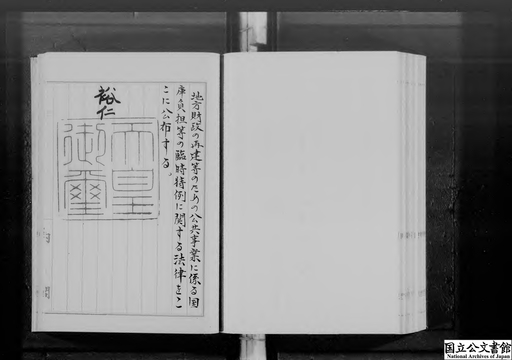 地方財政の再建等のための公共事業に係る国
庫負担等の臨時特例に関する法律をこ
こに公布する。
裕仁
天皇
御璽
国立公文書館
National Archives of Japan